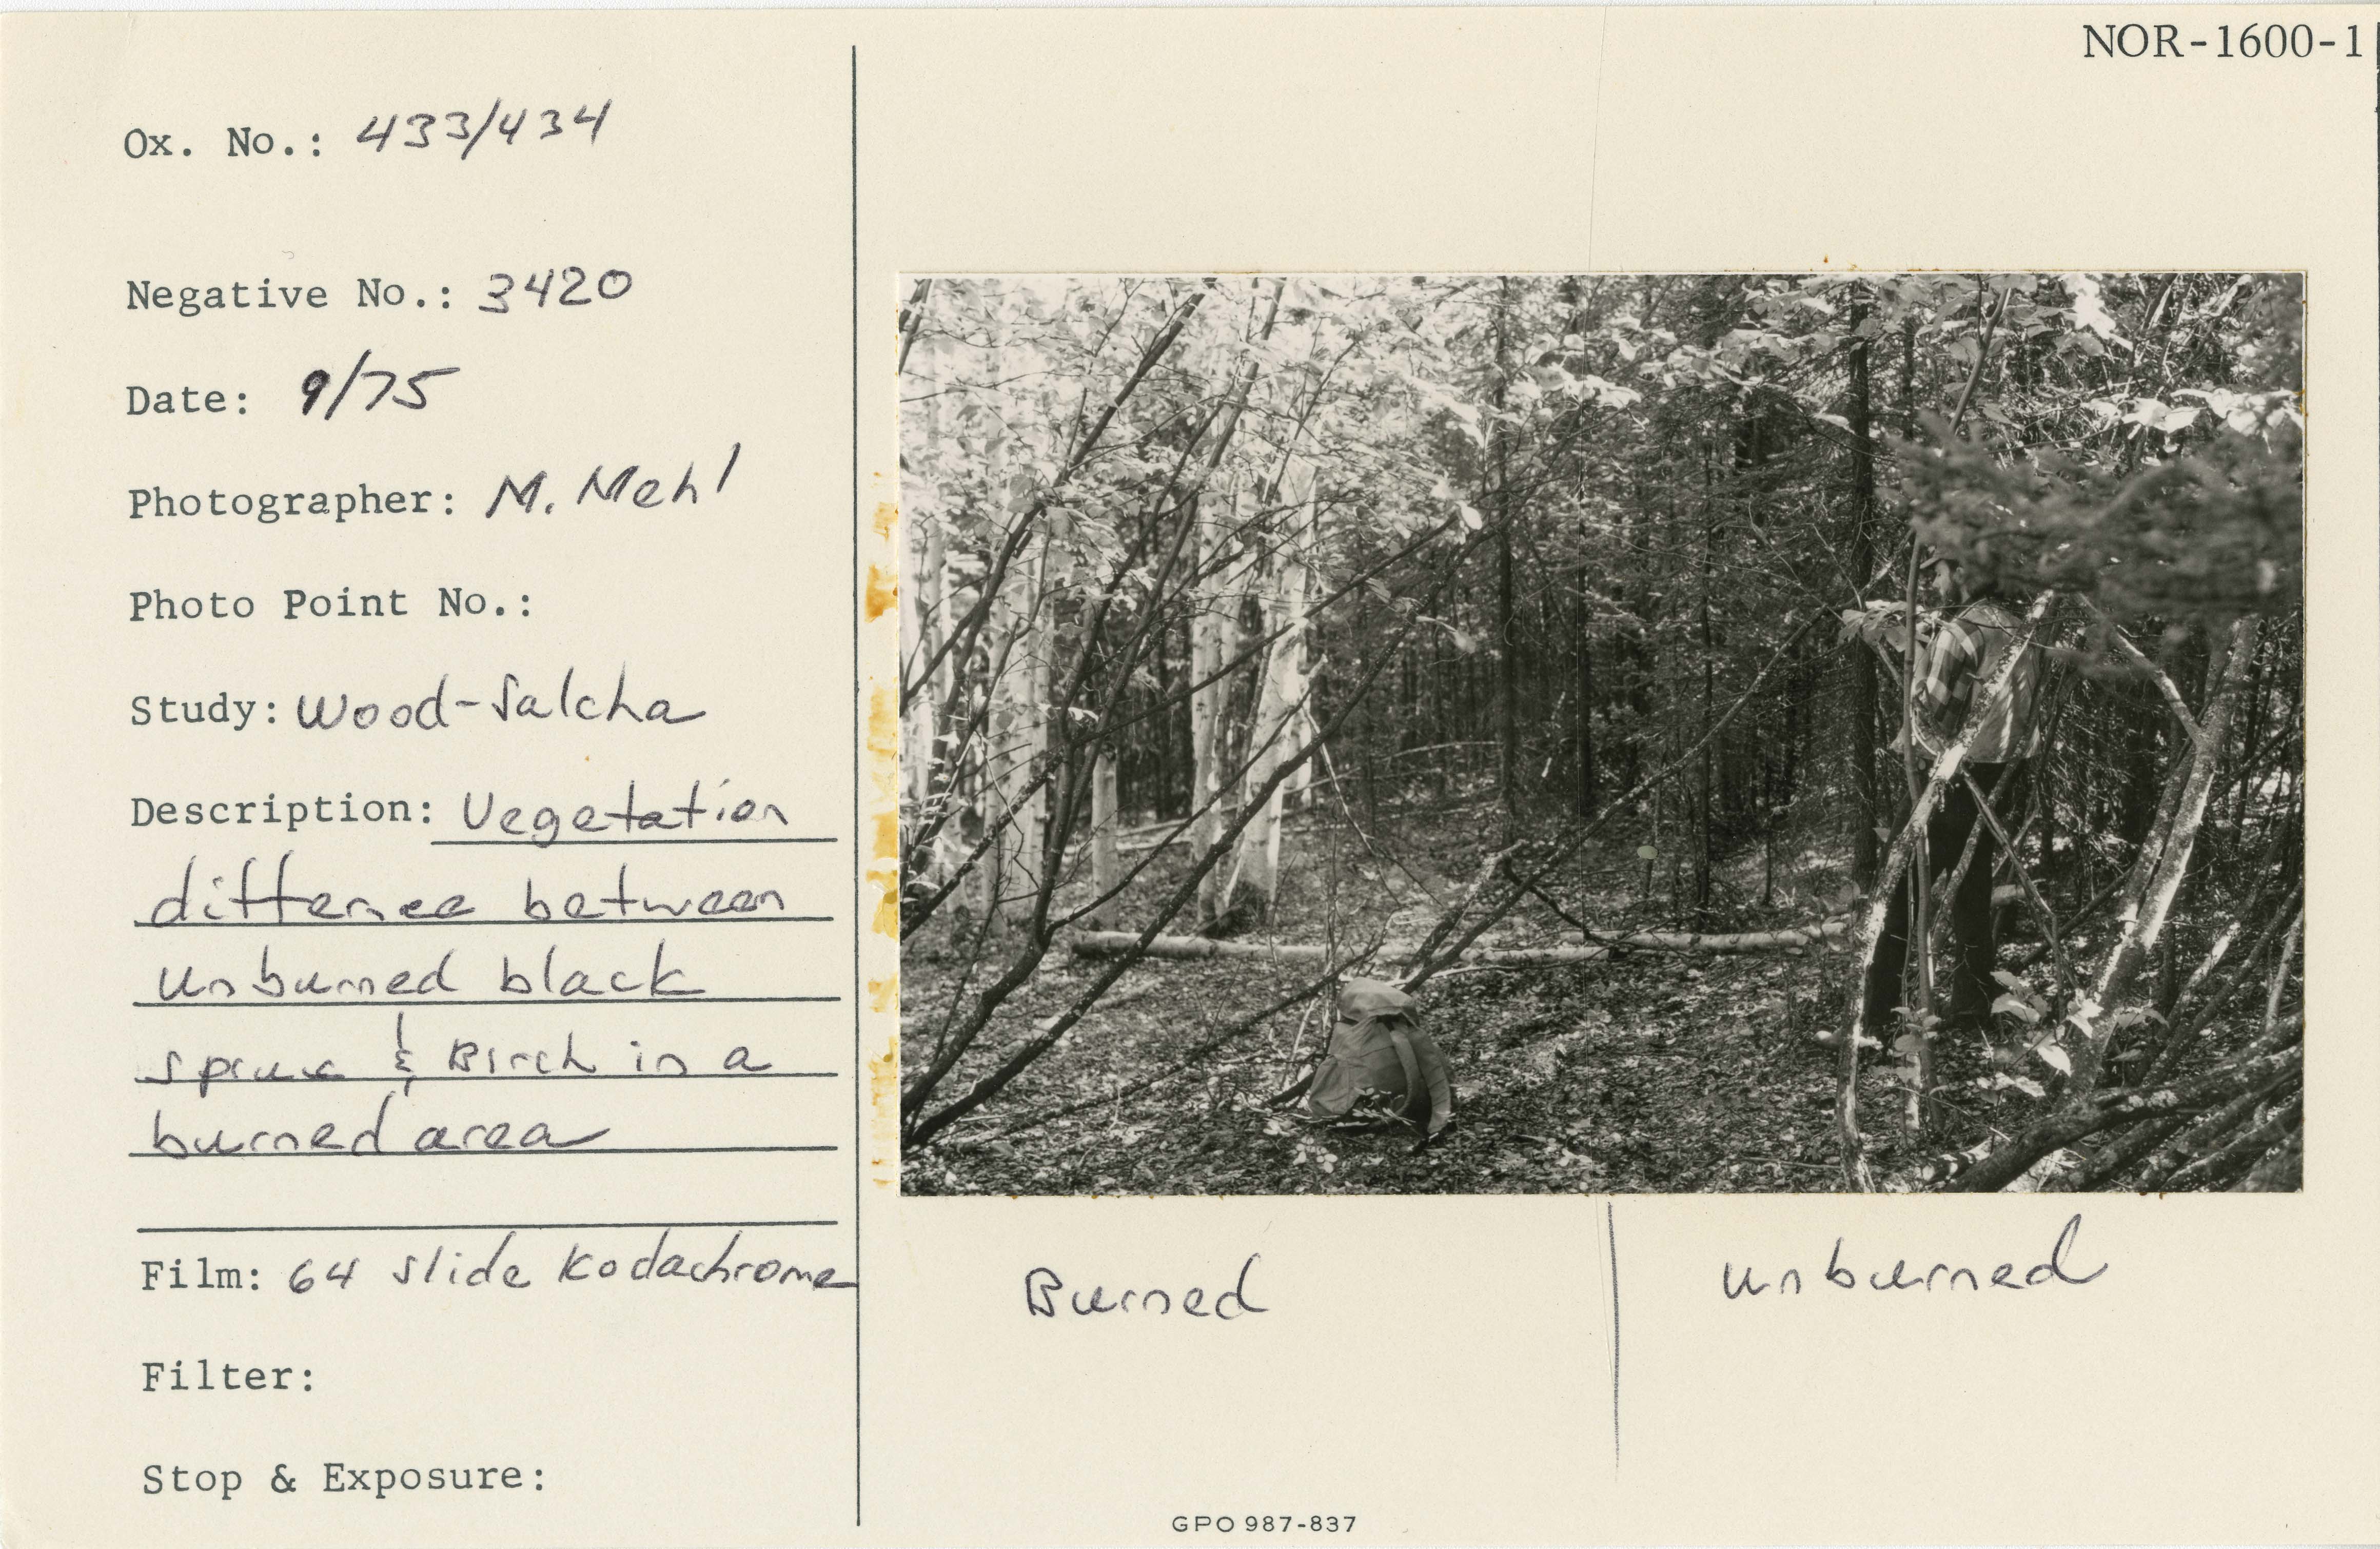 NOR-1600-1
Ox. No.: 433/434
Negative No.: 3420
Date: 9/75
Photographer: M. Mehl
Photo Point No.:
Study: Wood-Salcha
Description: Vegetation
differnce between
unburned black
spruce & Birch in a
burned area
Film: 64 slide Kodachrome
Filter:
Stop & Exposure:
Burned unburned
GPO 987-837